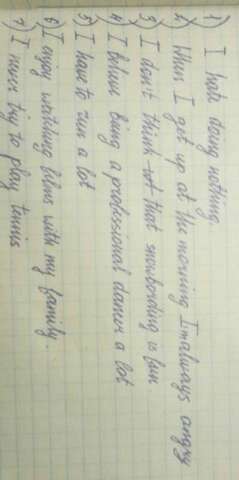 1) I hate doing nothing.
2) When I get up at the morning I'm always angry
3) I don't think that snowbording is fun
4) I believe being a professional dancer a lot
5) I have to run a lot
6) I enjoy watching films with my family.
7) I never try to play tennis